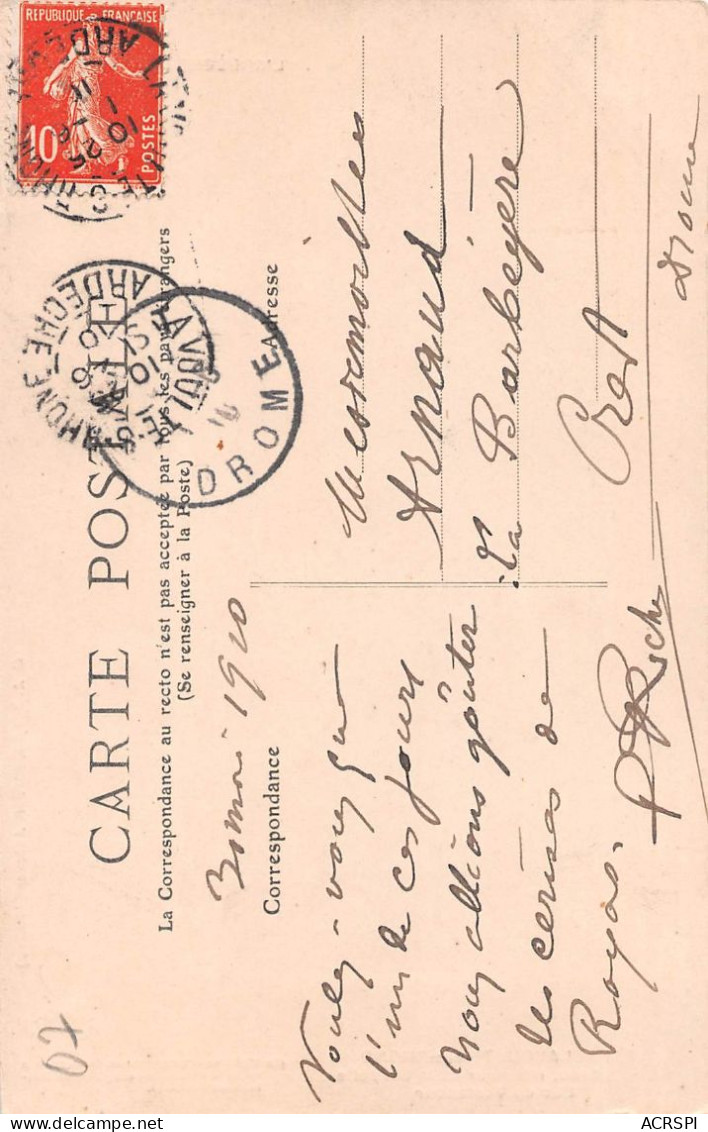 REPUBLIQUE FRANÇAISE
10
POSTES
ARDECHE
ARDECHE
DROME
CARTE POSTALE
La Correspondance au recto n'est pas acceptée par tous les pays étrangers
(Se renseigner à la Poste)
Correspondance
Adresse
30 mai 1910
Voulez-vous que
l'un de ces jours
nous allions goûter
les cerises de
Royas.
Mesdemoiselles
Arnaud
La Barbeyère
Crest
Drome
07
ACRSPI